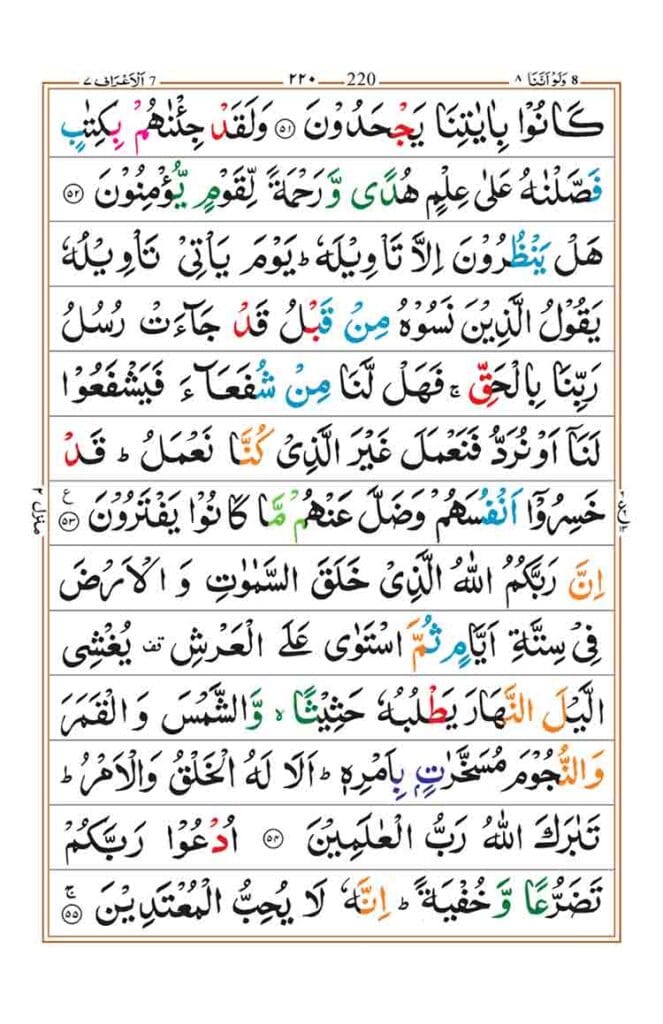 8 وَلَوْ اَنَّنَا ٨ 220 ٢٢٠ 7 اَلْاَعْرَاف ٧
كَانُوْا بِاٰيٰتِنَا يَجْحَدُوْنَ ۝٥١ وَلَقَدْ جِئْنٰهُمْ بِكِتٰبٍ
فَصَّلْنٰهُ عَلٰى عِلْمٍ هُدًى وَّ رَحْمَةً لِّقَوْمٍ يُّؤْمِنُوْنَ ۝٥٢
هَلْ يَنْظُرُوْنَ اِلَّا تَاْوِيْلَهٗ ؕ يَوْمَ يَاْتِيْ تَاْوِيْلُهٗ
يَقُوْلُ الَّذِيْنَ نَسُوْهُ مِنْ قَبْلُ قَدْ جَآءَتْ رُسُلُ
رَبِّنَا بِالْحَقِّ ۚ فَهَلْ لَّنَا مِنْ شُفَعَآءَ فَيَشْفَعُوْا
لَنَاۤ اَوْ نُرَدُّ فَنَعْمَلَ غَيْرَ الَّذِيْ كُنَّا نَعْمَلُ ؕ قَدْ
خَسِرُوْۤا اَنْفُسَهُمْ وَضَلَّ عَنْهُمْ مَّا كَانُوْا يَفْتَرُوْنَ ۝٥٣ ع
منزل ٢
اِنَّ رَبَّكُمُ اللّٰهُ الَّذِيْ خَلَقَ السَّمٰوٰتِ وَ الْاَرْضَ
فِيْ سِتَّةِ اَيَّامٍ ثُمَّ اسْتَوٰى عَلَى الْعَرْشِ قف يُغْشِى
الَّيْلَ النَّهَارَ يَطْلُبُهٗ حَثِيْثًا ۙ وَّالشَّمْسَ وَ الْقَمَرَ
وَالنُّجُوْمَ مُسَخَّرٰتٍۭ بِاَمْرِهٖ ؕ اَلَا لَهُ الْخَلْقُ وَالْاَمْرُ ؕ
تَبٰرَكَ اللّٰهُ رَبُّ الْعٰلَمِيْنَ ۝٥٤ اُدْعُوْا رَبَّكُمْ
تَضَرُّعًا وَّ خُفْيَةً ؕ اِنَّهٗ لَا يُحِبُّ الْمُعْتَدِيْنَ ۝٥٥ ۚ